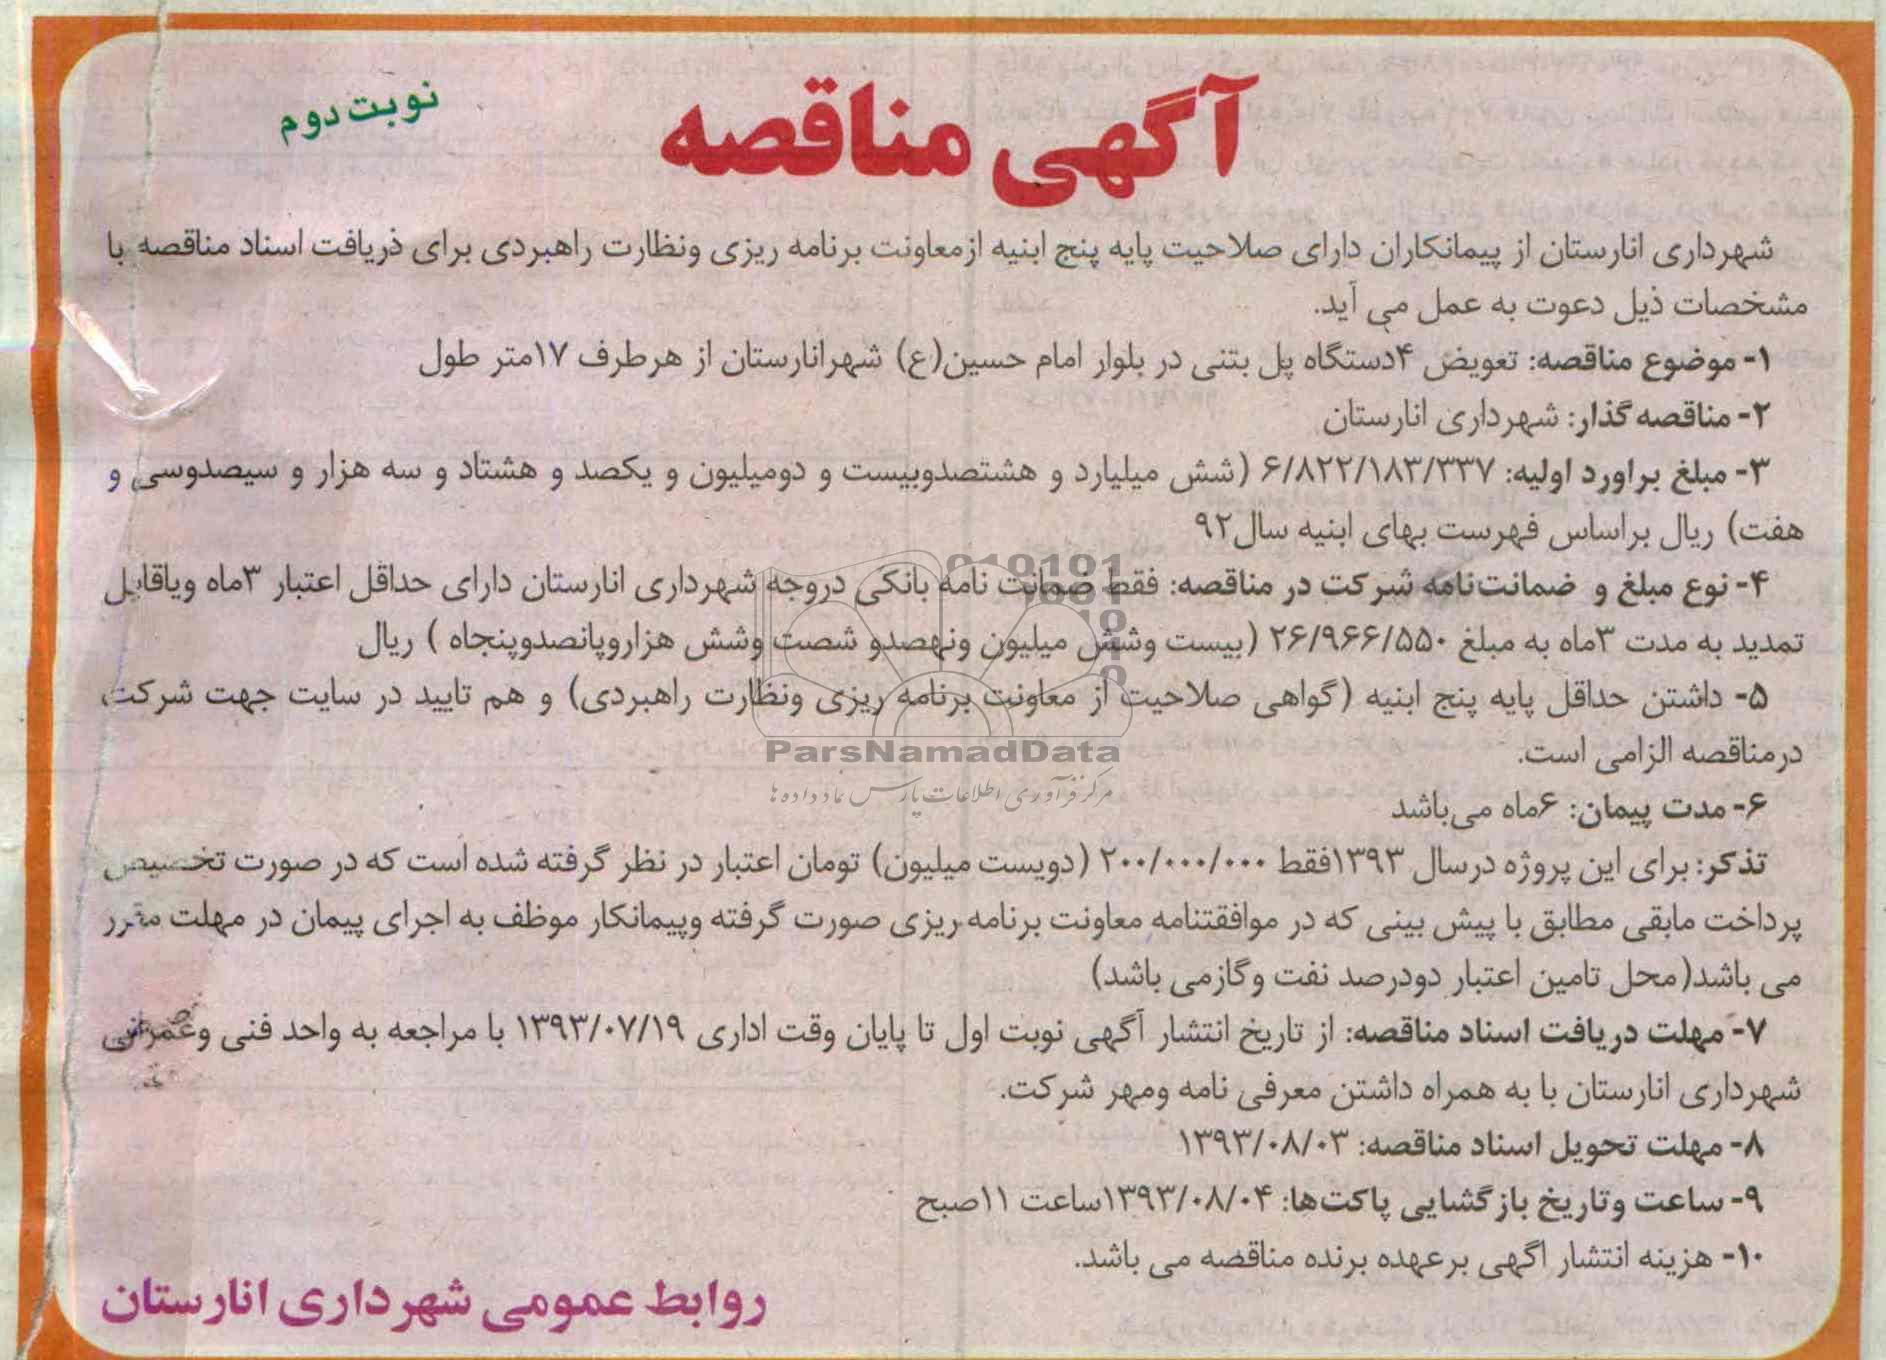 آگهی مناقصه
نوبت دوم
شهرداری انارستان از پیمانکاران دارای صلاحیت پایه پنج ابنیه ازمعاونت برنامه ریزی ونظارت راهبردی برای ذریافت اسناد مناقصه با
مشخصات ذیل دعوت به عمل می آید.
۱- موضوع مناقصه: تعویض ۴دستگاه پل بتنی در بلوار امام حسین(ع) شهرانارستان از هرطرف ۱۷متر طول
۲- مناقصه گذار: شهرداری انارستان
۳- مبلغ براورد اولیه: ۶/۸۲۲/۱۸۳/۳۳۷ (شش میلیارد و هشتصدوبیست و دومیلیون و یکصد و هشتاد و سه هزار و سیصدوسی و
هفت) ریال براساس فهرست بهای ابنیه سال۹۲
۴- نوع مبلغ و ضمانت‌نامه شرکت در مناقصه: فقط ضمانت نامه بانکی دروجه شهرداری انارستان دارای حداقل اعتبار ۳ماه ویاقابل
تمدید به مدت ۳ماه به مبلغ ۲۶/۹۶۶/۵۵۰ (بیست وشش میلیون ونهصدو شصت وشش هزاروپانصدوپنجاه ) ریال
۵- داشتن حداقل پایه پنج ابنیه (گواهی صلاحیت از معاونت برنامه ریزی ونظارت راهبردی) و هم تایید در سایت جهت شرکت
درمناقصه الزامی است.
۶- مدت پیمان: ۶ماه می‌باشد
تذکر: برای این پروژه درسال ۱۳۹۳فقط ۲۰۰/۰۰۰/۰۰۰ (دویست میلیون) تومان اعتبار در نظر گرفته شده است که در صورت تخصیص
پرداخت مابقی مطابق با پیش بینی که در موافقتنامه معاونت برنامه ریزی صورت گرفته وپیمانکار موظف به اجرای پیمان در مهلت مقرر
می باشد(محل تامین اعتبار دودرصد نفت وگازمی باشد)
۷- مهلت دریافت اسناد مناقصه: از تاریخ انتشار آگهی نوبت اول تا پایان وقت اداری ۱۳۹۳/۰۷/۱۹ با مراجعه به واحد فنی وعمرانی
شهرداری انارستان با به همراه داشتن معرفی نامه ومهر شرکت.
۸- مهلت تحویل اسناد مناقصه: ۱۳۹۳/۰۸/۰۳
۹- ساعت وتاریخ بازگشایی پاکت‌ها: ۱۳۹۳/۰۸/۰۴ساعت ۱۱صبح
۱۰- هزینه انتشار اگهی برعهده برنده مناقصه می باشد.
روابط عمومی شهرداری انارستان
ParsNamadData
مرکز فرآوری اطلاعات پارس نماد داده ها